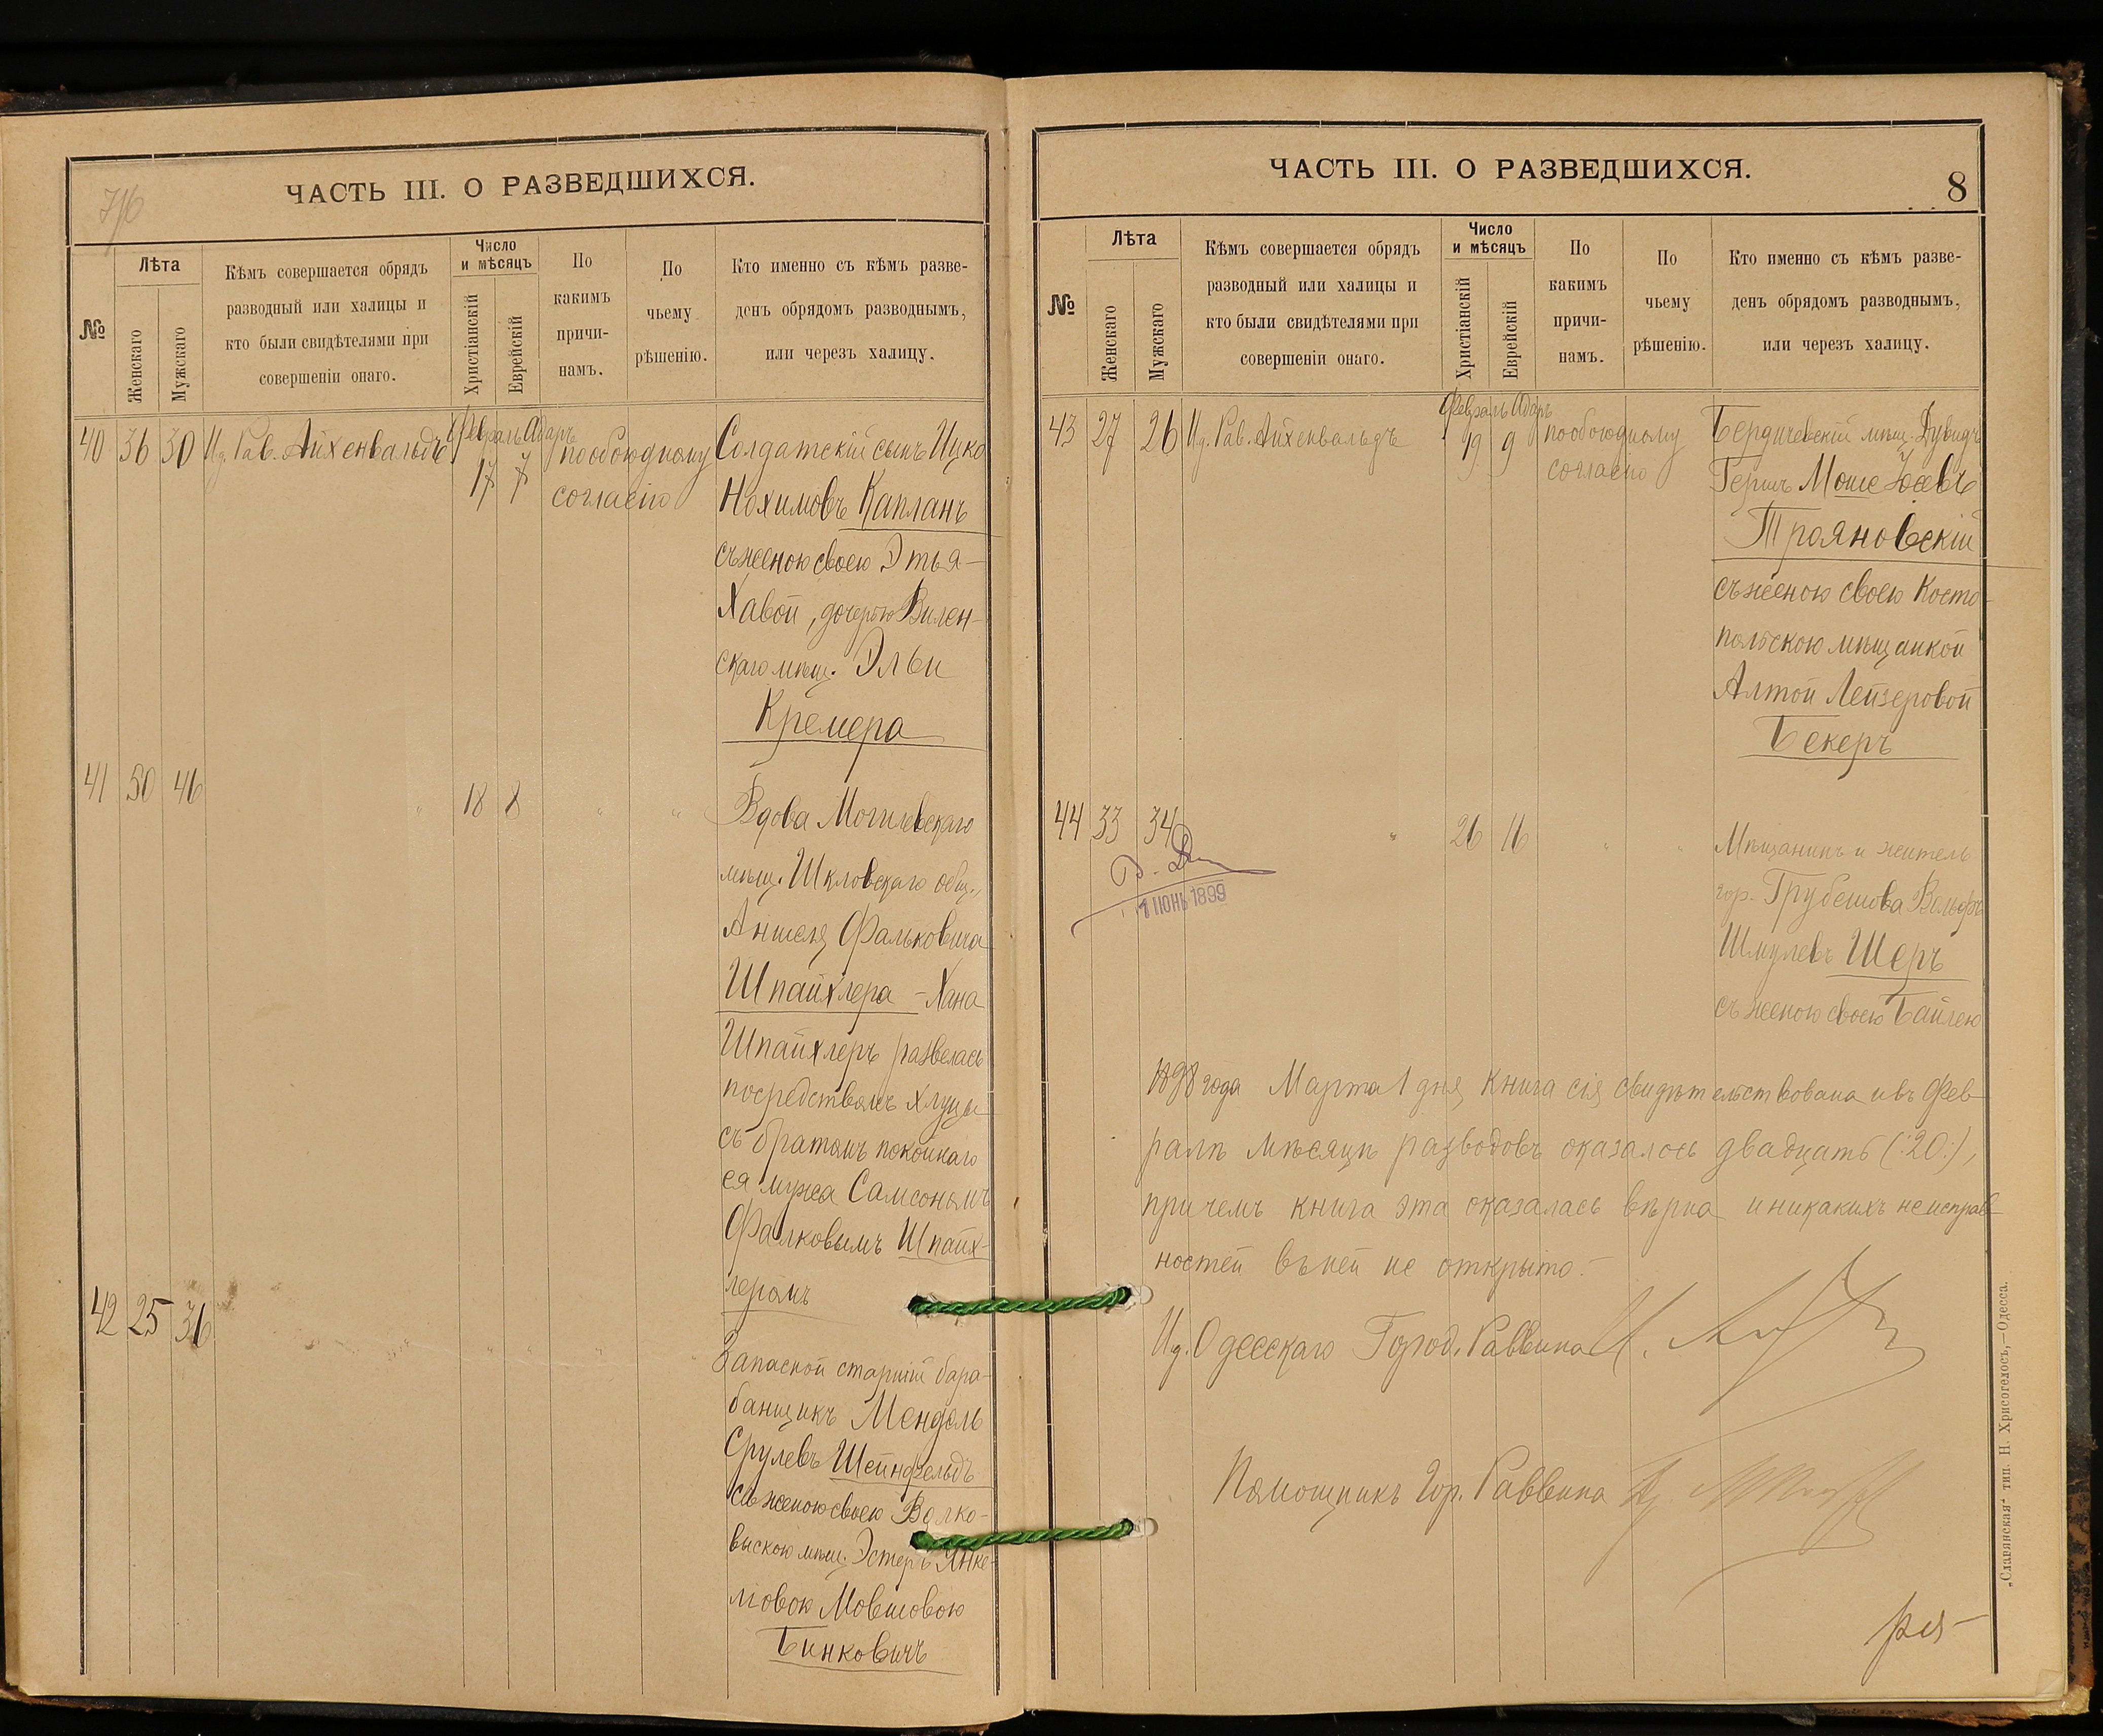 ЧАСТЬ III. О РАЗВЕДШИХСЯ.
№
Лѣта
Женскаго
Мужскаго
Кѣмъ совершается обрядъ
разводный или халицы и
кто были свидѣтелями при
совершеніи онаго.
Число
и мѣсяцъ
Христіанскій
Еврейскій
По
какимъ
причи-
намъ.
По
чьему
рѣшенію.
Кто именно съ кѣмъ разве-
денъ обрядомъ разводнымъ,
или черезъ халицу.
40 36 30 Ид. Рав. Айхенвальдъ
Февраль Адаръ
17 7
по обоюдному
согласію
Солдатскій сынъ Ицко
Нохимовъ Капланъ
съ женою своею Этья-
Хавой, дочерью Вилен-
скаго мѣщ. Эльи
Кремера
41 50 46 " 18 8 " "
Вдова Могилевскаго
мѣщ. Шкловскаго общ.,
Аншеля Фальковича
Шпайхлера - Хана
Шпайхлеръ развелась
посредствомъ хлуцы
съ братомъ покойнаго
ея мужа Самсономъ
Фалковымъ Шпайх-
леромъ
42 25 36 " " " "
Запасной старшій бара-
банщикъ Мендель
Срулевъ Шейнфельдъ
съ женою своею Волко-
выскою мѣщ. Эстеръ Янке-
левок Мовшовою
Бинковичъ
ЧАСТЬ III. О РАЗВЕДШИХСЯ.
8
№
Лѣта
Женскаго
Мужскаго
Кѣмъ совершается обрядъ
разводный или халицы и
кто были свидѣтелями при
совершеніи онаго.
Число
и мѣсяцъ
Христіанскій
Еврейскій
По
какимъ
причи-
намъ.
По
чьему
рѣшенію.
Кто именно съ кѣмъ разве-
денъ обрядомъ разводнымъ,
или черезъ халицу.
43 27 26 Ид. Рав. Айхенвальдъ
Февраль Адаръ
19 9
по обоюдному
согласію
Бердичевскій мѣщ. Дувидъ
Гершъ Моше Іосевъ
Трояновскій
съ женою своею Косто-
польскою мѣщанкой
Алтой Лейзеровой
Бекеръ
44 33 34 " 26 16 " "
1 ІЮНЬ 1899
Мѣщанинъ и житель
гор. Грубешова Вольфъ
Шмулевъ Шеръ
съ женою своею Байлею
1898 года Марта 1 дня книга сія свидѣтельствована и въ Фев-
ралѣ мѣсяцѣ разводовъ оказалось двадцать (:20:),
причемъ книга эта оказалась вѣрна и никакихъ неисправ-
ностей въ ней не открыто.
Ид. Одесскаго Город. Раввина
Помощникъ Гор. Раввина
„Славянская“ тип. Н. Хрисогелосъ,—Одесса.